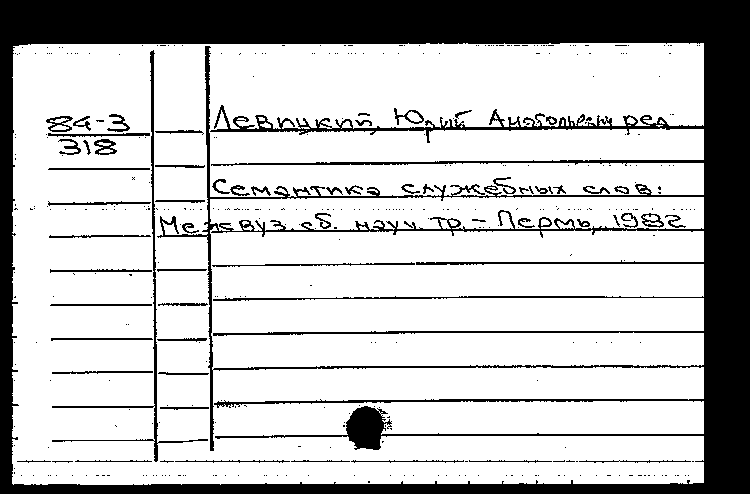 84-3
318
Левицкий, Юрий Анатольевич ред
Семантика служебных слов:
Межвуз. сб. науч. тр. - Пермь, 1982